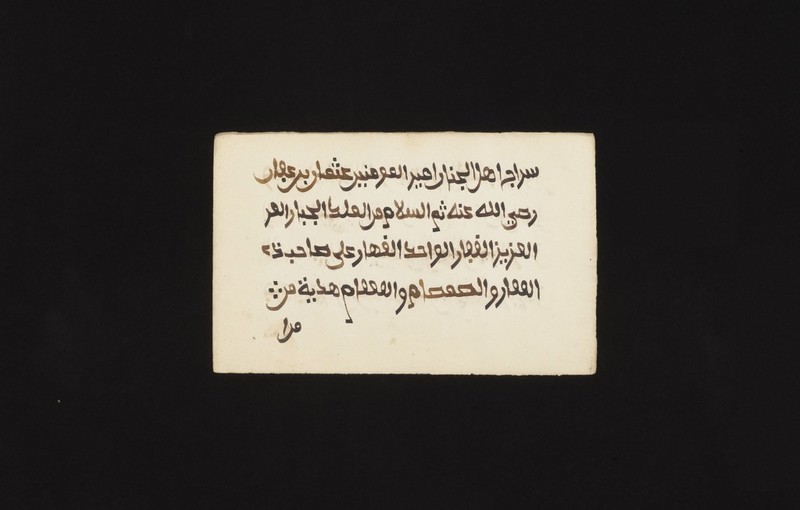 سراج اهل الجنان امير المومنين عثمان بن عفان
رضي الله عنه ثم السلام من الملك الجبار العز
العزيز الغفار الواحد القهار على صاحب ذ
الفقار والصمصام والقمقام هدية من